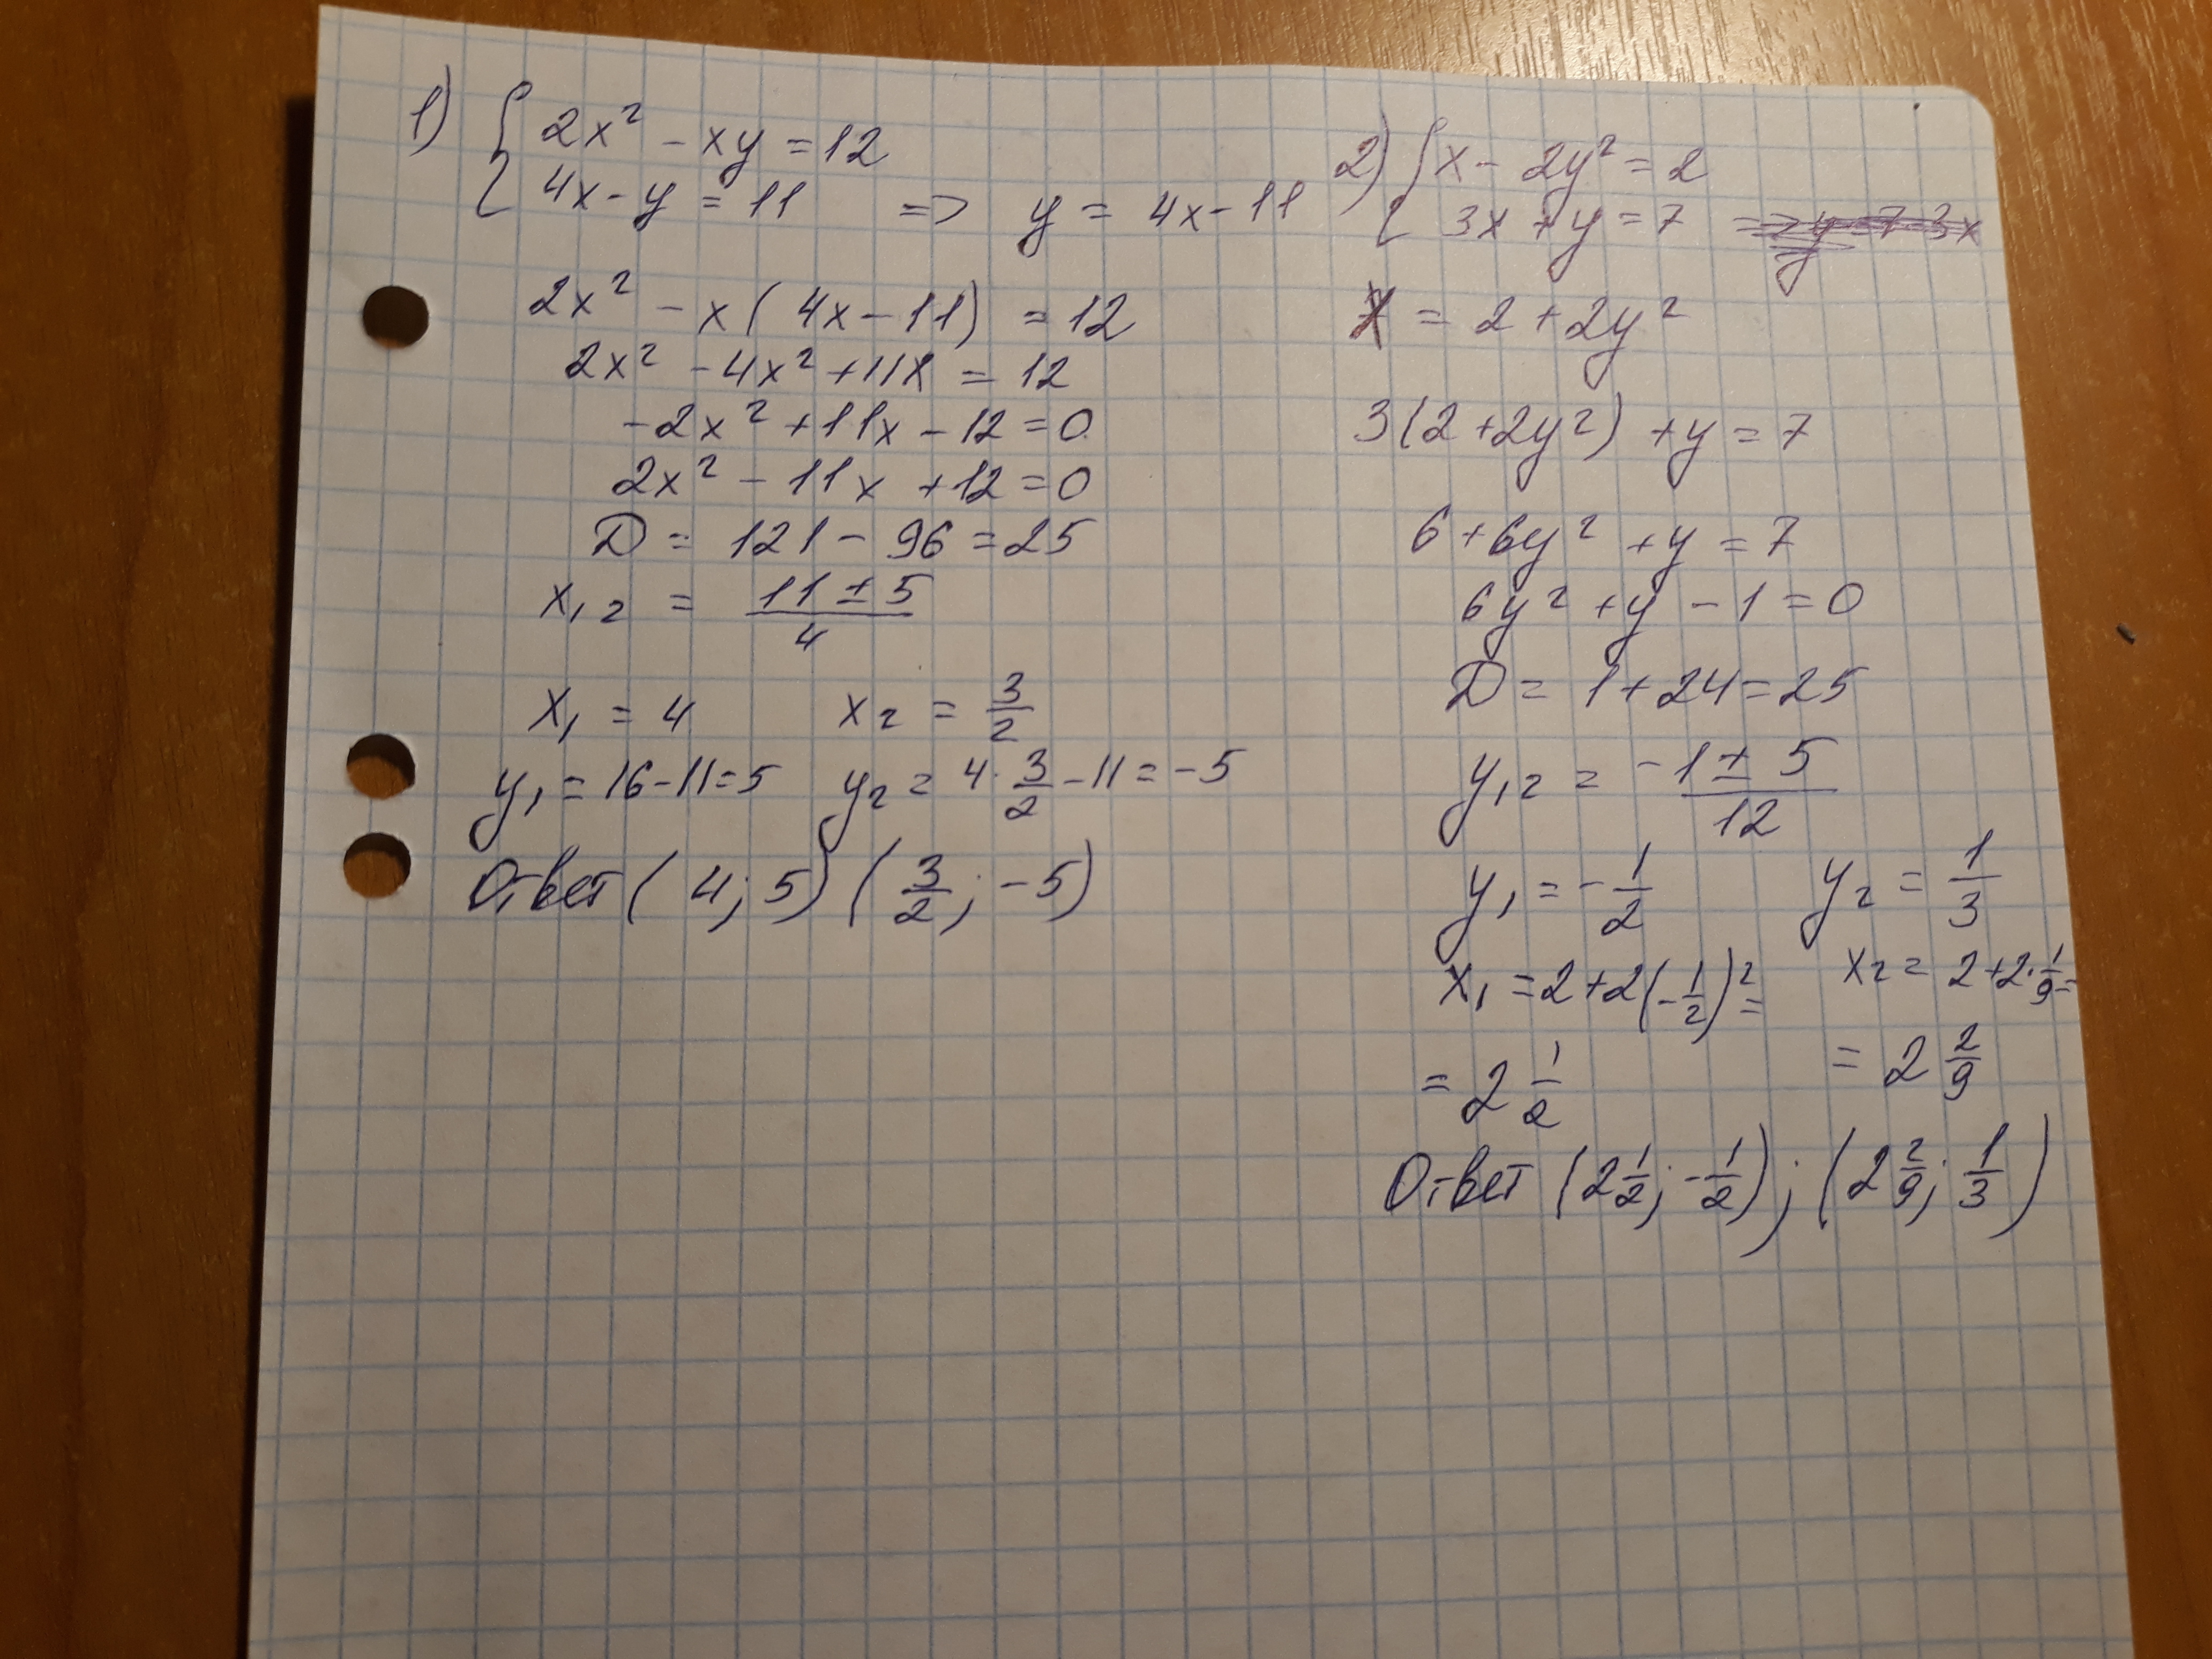 1) { 2x² - xy = 12
4x - y = 11 => y = 4x - 11
2x² - x(4x - 11) = 12
2x² - 4x² + 11x = 12
-2x² + 11x - 12 = 0
2x² - 11x + 12 = 0
D = 121 - 96 = 25
x₁₂ = (11 ± 5)/4
x₁ = 4 x₂ = 3/2
y₁ = 16 - 11 = 5 y₂ = 4 · 3/2 - 11 = -5
Ответ (4; 5) (3/2; -5)
2) { x - 2y² = 2
3x + y = 7 => y = 7 - 3x
y
x = 2 + 2y²
3(2 + 2y²) + y = 7
6 + 6y² + y = 7
6y² + y - 1 = 0
D = 1 + 24 = 25
y₁₂ = (-1 ± 5)/12
y₁ = -1/2 y₂ = 1/3
x₁ = 2 + 2(-1/2)² = x₂ = 2 + 2 · 1/9 =
= 2 1/2 = 2 2/9
Ответ (2 1/2; -1/2); (2 2/9; 1/3)